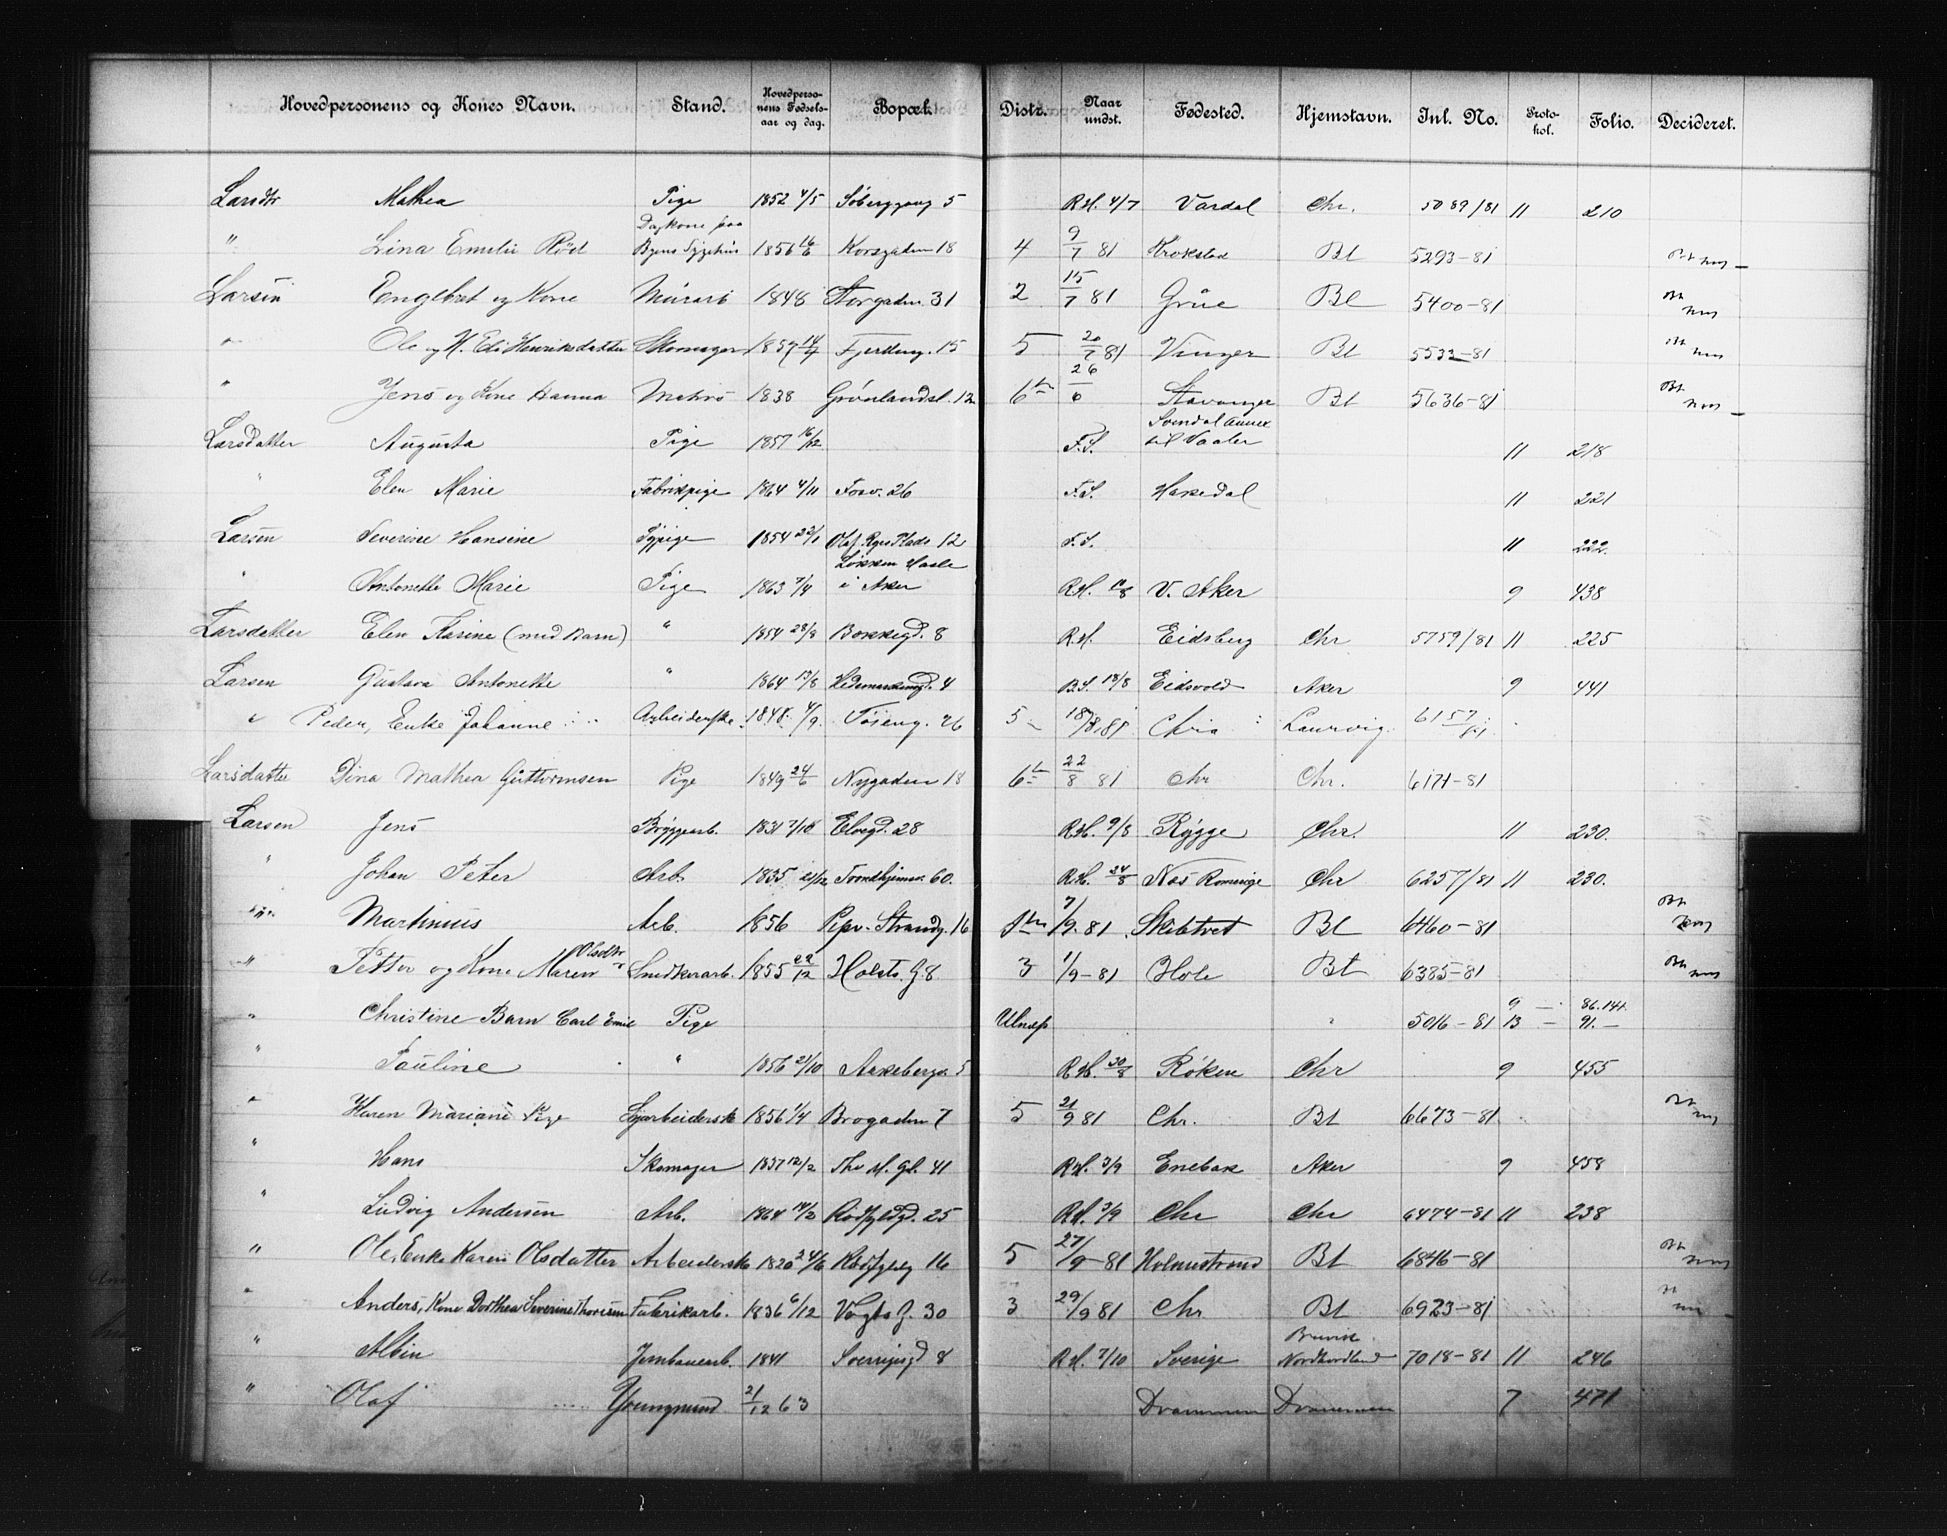 Hovedpersonens og Kones Navn. Stand. Hovedpersonens Fødselsaar og dag. Bopæl. Distr. Naar undst. Fødested. Hjemstavn. Inl. No. Protokol. Folio. Decideret.
Larsdtr Mathea Pige 1852 4/5 Søberggang 5 R.H. 4/7 Vardal Chr. 5089/81 11 210
" Lina Emelie Rød Dagkone paa Byens Sygehus 1856 16/6 Korsgaden 18 4 9/7 81 Krokstad Bt 5293-81 Bt
Larsen Englbret og Kone Murarb 1848 Storgaden 31 2 15/7 81 Grue Bt 5400-81 Bt
" Ole og H. Edi Henriksdatter Skomager 1857 14/4 Fjerding. 15 5 20/7 81 Vinger Bt 5532-81 Bt
" Jens og Kone Hanna Matros 1838 Grønlandsl. 12 6te 26/6 Stavanger Bt 5636-81 Bt
Larsdatter Augusta Pige 1857 16/12 F.S. Svindal Annex til Vaaler 11 218
" Elen Marie Fabrikpige 1864 4/11 Fosv. 26 F.S. Hakedal 11 221
Larsen Severine Hansine Sypige 1854 22/1 Olaf Ryes Plads 12 F.S. 11 222.
" Antonette Marie Pige 1863 7/4 Løkken Hasle i Aker R.H. 10/8 V. Aker 9 438
Larsdatter Elen Karine (med Barn) " 1854 28/8 Bokkegd. 8 R.H. Eidsberg Chr 5759/81 11 225
Larsen Gustava Antonette " 1864 13/8 Hedemarkensgd. 4 B.S. 18/8 Eidsvold Aker 9 441
" Peder, Enke Johanne Arbeiderske 1848 4/9 Tøieng. 26 5 18/8 81 Chria Laurvig 6157/81
Larsdatter Dina Mathea Guttormsen Pige 1849 24/6 Nygaden 18 6te 22/8 81 Chr Chr. 6171-81
Larsen Jens Bryggearb. 1831 7/10 Elvegd. 28 R.H. 9/8 Rygge Chr. 11 230.
" Johan Peter Arb. 1835 21/12 Trondhjemsv. 60. R.H. 24/8 Næs Romerige Chr 6257/81 11 230.
" Martinius Arb. 1856 Pipv. Strandg. 16 1ste 7/9 81 Skibtvet Bt 6460-81 Bt
" Petter og Kone Maren Olsdtr Snedkerarb. 1855 22/12 Holsts G. 8 3 1/9-81 Hole Bt 6385-81 Bt
" Christine Barn Carl Emil Pige 5016-81 9 - 86.141. 13 - 91.-
" Pauline " 1856 21/10 Akeberg. 5 R.H. 30/8 Røken Chr 9 455
" Karen Mariane Pige Syarbeidersk 1856 1/4 Brogaden 7 5 21/9 81 Chr. Bt 6673-81 Bt
" Hans Skomager 1837 12/2 Thv M. Gd. 41 R.H. 3/9 Enebak Aker 9 458
" Ludvig Andersen Arb. 1864 14/2 Rødfyldgd. 25 R.H. 3/9 Chr Chr 6474-81 11 238
" Ole, Enke Karen Olsdatter Arbeidersk 1820 24/6 Rødfyldg 16 5 27/9-81 Holmestrand Bt 6846-81 Bt
" Anders, Kone Dorthea Severine Thoresen Fabrikarb. 1836 6/12 Vogts G. 30 3 29/9 81 Chr Bt 6923-81
" Albin Jernbanearb. 1841 Sverrigsgd 8 R.H. 7/10 Sverige Bruvik Nordhordland 7018-81 11 246
" Olaf Youngmand 21/12 63 Drammen Drammen 7 471